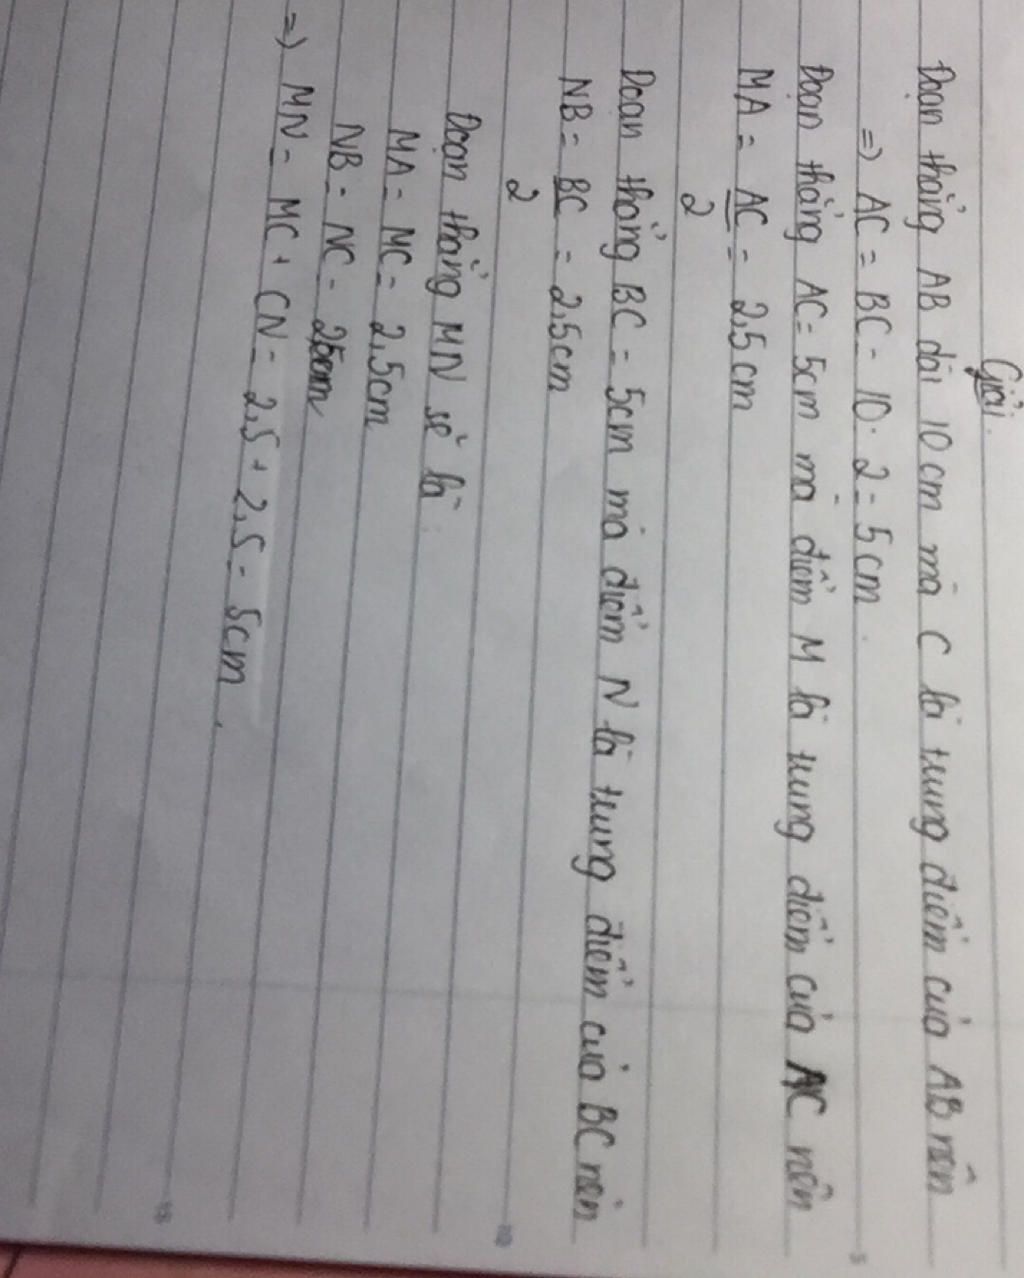 Giải.
Đoạn thẳng AB dài 10 cm mà C là trung điểm của AB nên
=) AC = BC = 10 : 2 = 5 cm.
Đoạn thẳng AC = 5cm mà điểm M là trung điểm của AC nên
MA = AC = 2,5 cm
2
Đoạn thẳng BC = 5cm mà điểm N là trung điểm của BC nên
NB = BC = 2,5cm
2
Đoạn thẳng MN sẽ là:
MA = MC = 2,5cm
NB = NC = 2,5cm
=) MN = MC + CN = 2,5 + 2,5 = 5cm.
5
10
15